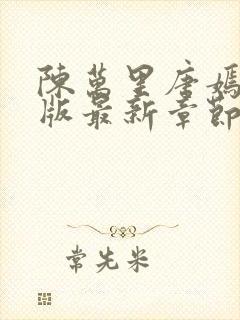 陳萬里唐嫣
版最新章節
常先米